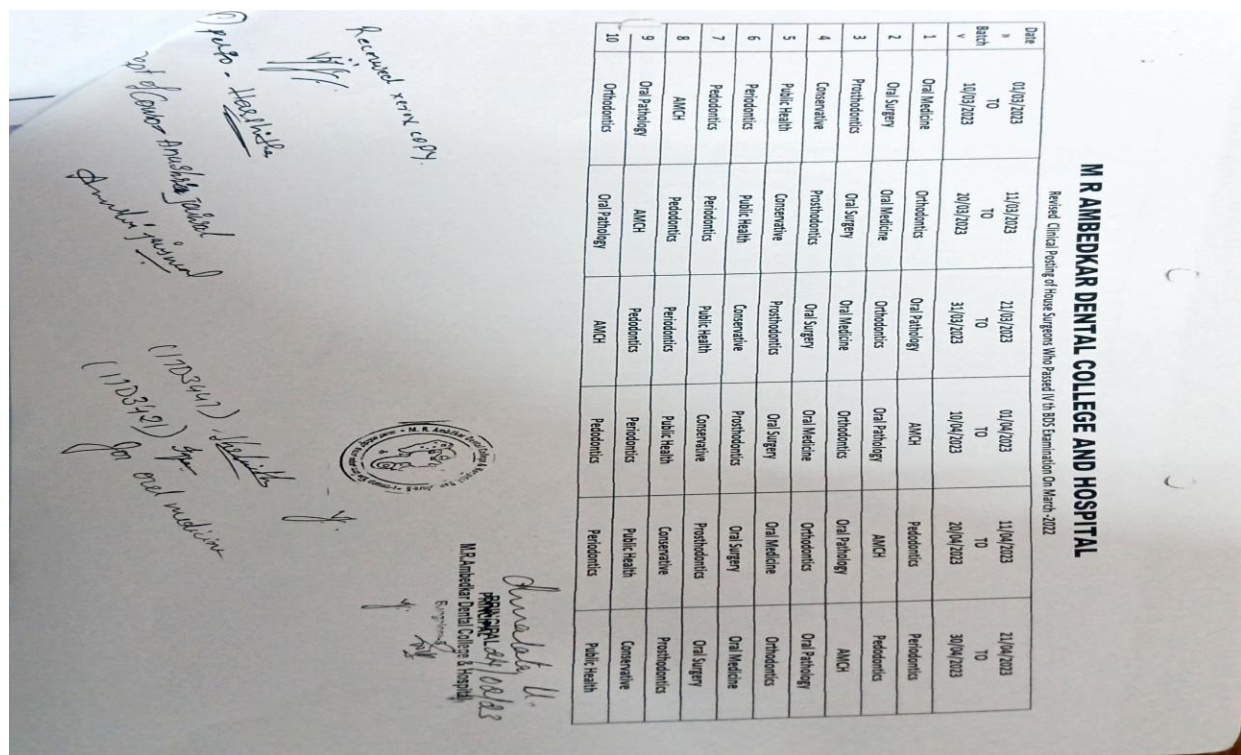 M R AMBEDKAR DENTAL COLLEGE AND HOSPITAL
Revised Clinical Posting of House Surgeons Who Passed IV th BDS Examination On March -2022
Date » Batch v 01/03/2023 TO 10/03/2023 11/03/2023 TO 20/03/2023 21/03/2023 TO 31/03/2023 01/04/2023 TO 10/04/2023 11/04/2023 TO 20/04/2023 21/04/2023 TO 30/04/2023
1 Oral Medicine Orthodontics Oral Pathology AMCH Pedodontics Periodontics
2 Oral Surgery Oral Medicine Orthodontics Oral Pathology AMCH Pedodontics
3 Prosthodontics Oral Surgery Oral Medicine Orthodontics Oral Pathology AMCH
4 Conservative Prosthodontics Oral Surgery Oral Medicine Orthodontics Oral Pathology
5 Public Health Conservative Prosthodontics Oral Surgery Oral Medicine Orthodontics
6 Periodontics Public Health Conservative Prosthodontics Oral Surgery Oral Medicine
7 Pedodontics Periodontics Public Health Conservative Prosthodontics Oral Surgery
8 AMCH Pedodontics Periodontics Public Health Conservative Prosthodontics
9 Oral Pathology AMCH Pedodontics Periodontics Public Health Conservative
10 Orthodontics Oral Pathology AMCH Pedodontics Periodontics Public Health
24/02/23
PRINCIPAL
M.R.Ambedkar Dental College & Hospital
Recieved xerox copy.
1) pedo - Harshitha
Dept of Conso Anushka jaiswal
(17D3447)
(17D3421)
for oral medicine